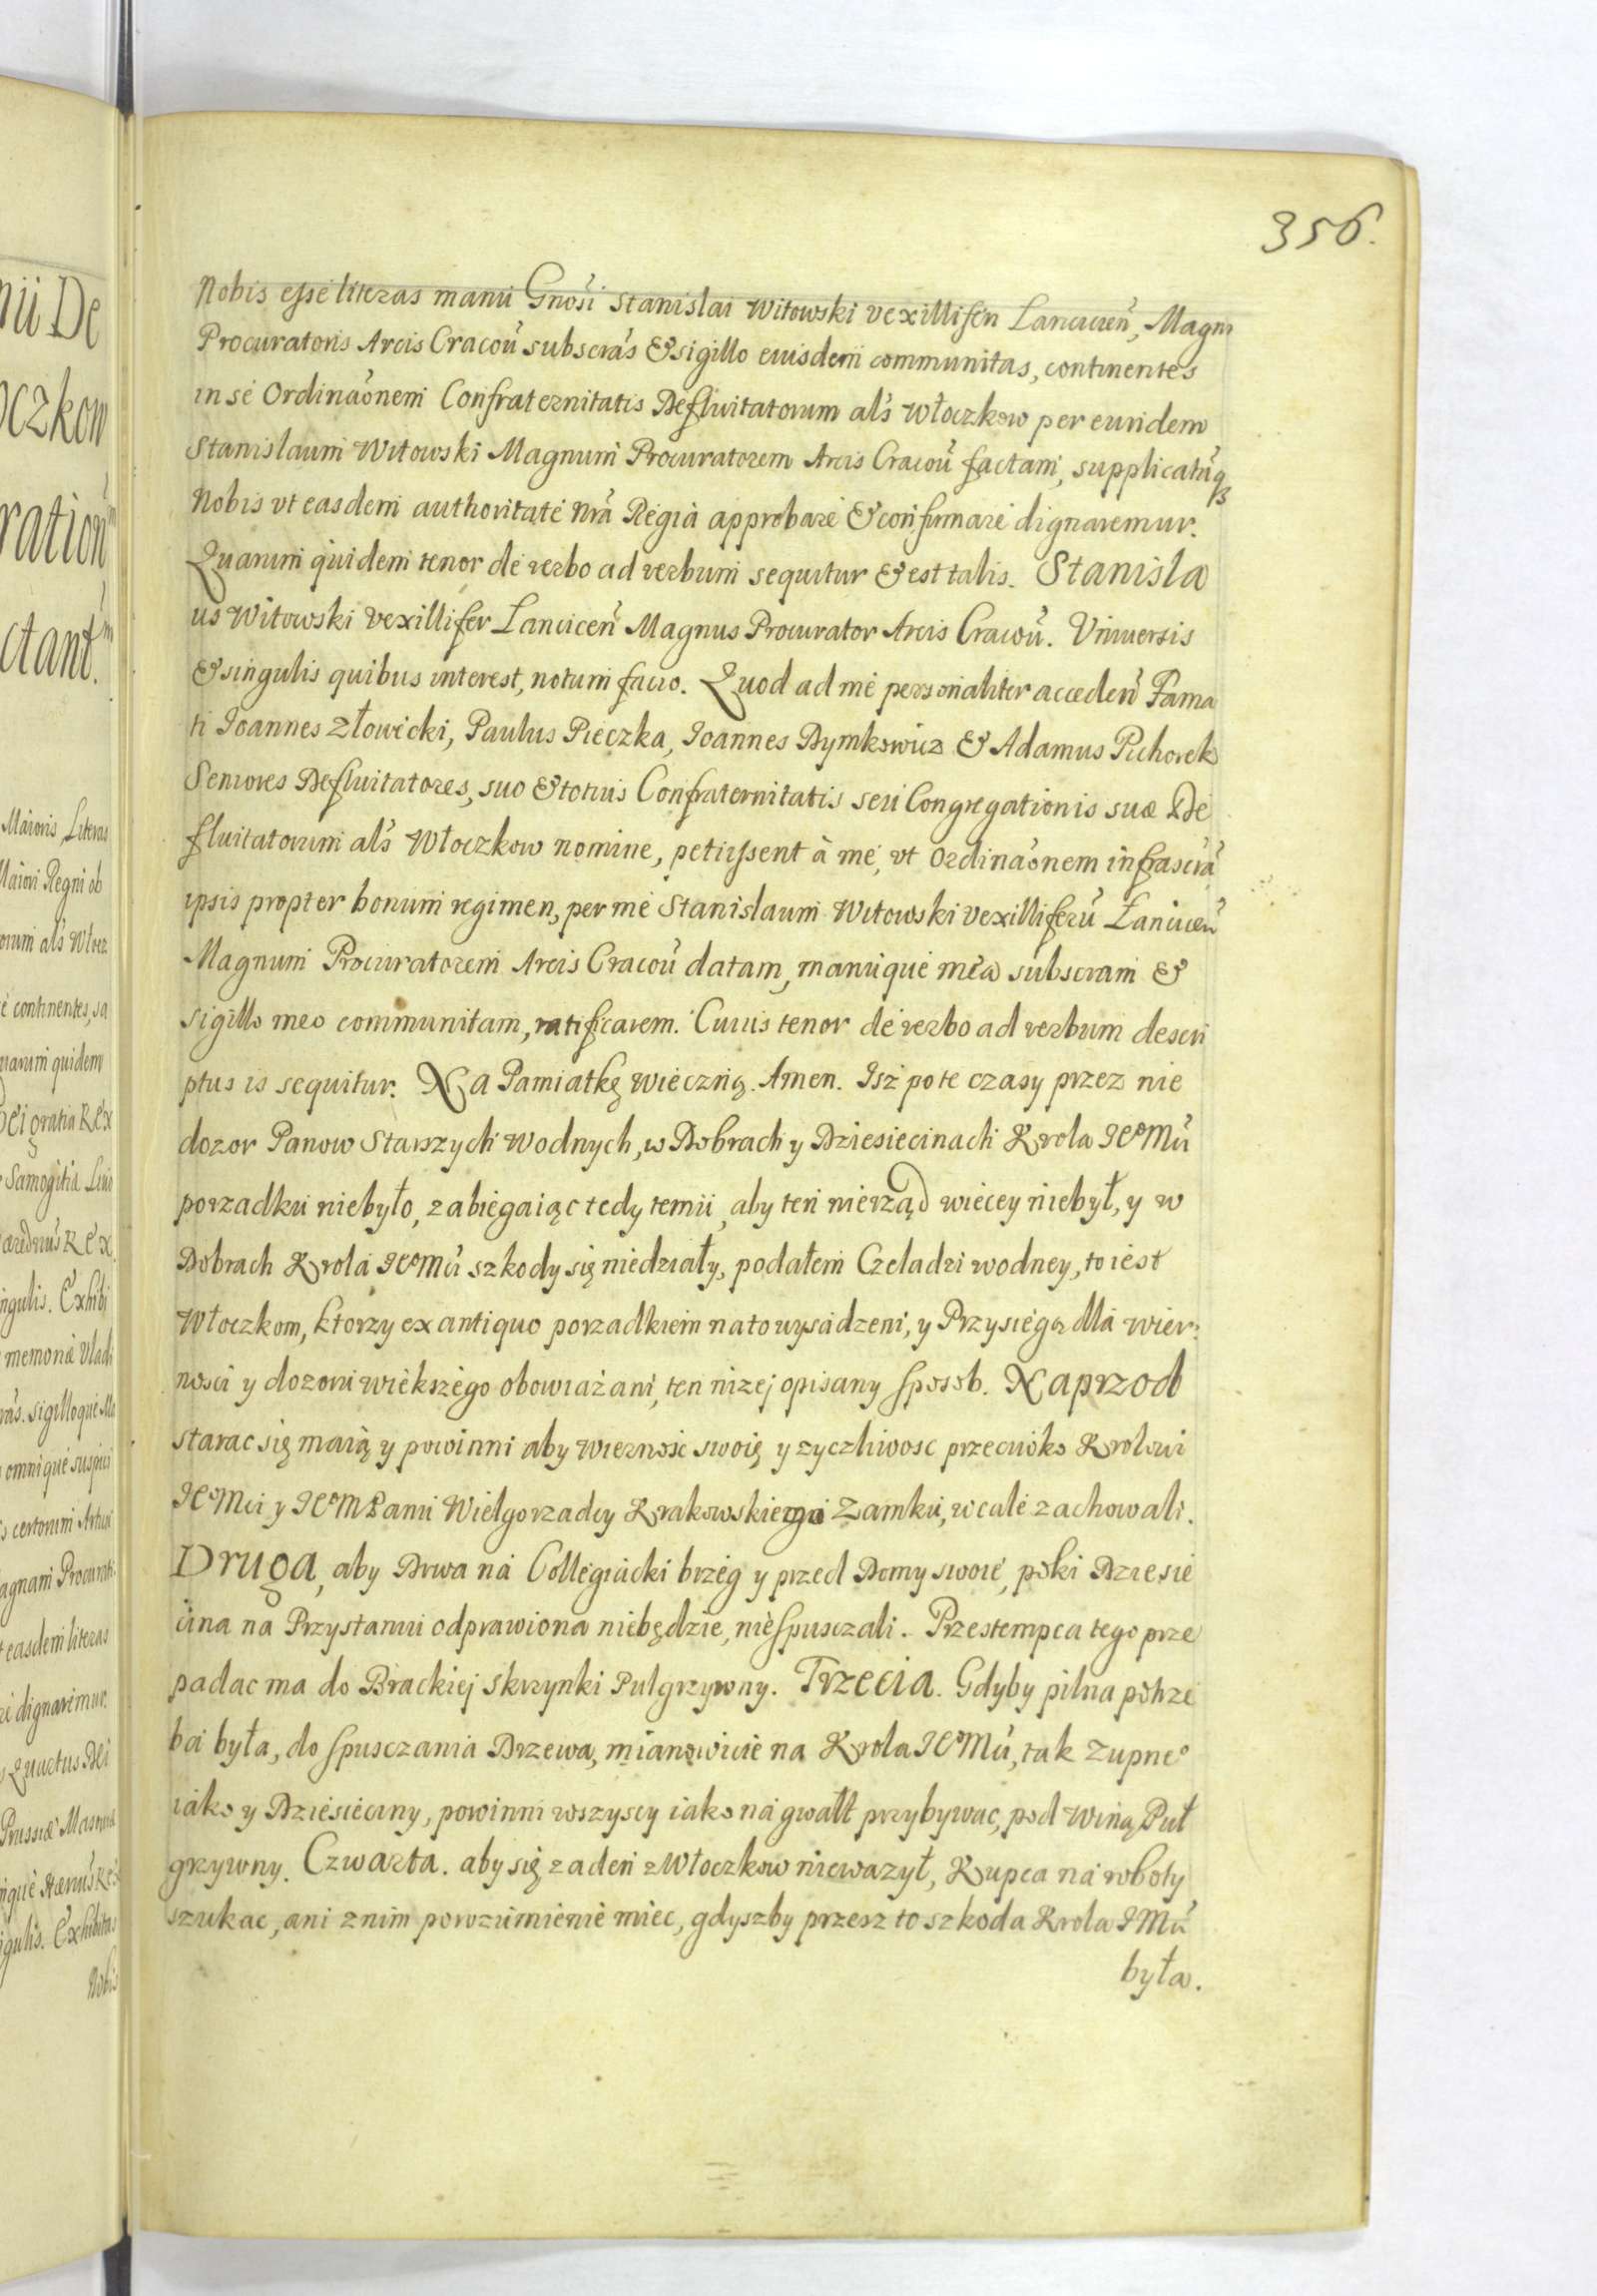 356.
Nobis esse literas manu Gnosi Stanislai Witowski vexilliferi Lancicień, Magni
Procuratoris Arcis Cracoũ subscras & sigillo eiusdem communitas, continentes
in se Ordinaonem Confraternitatis Defluitatorum als Włoczkow per eundem
Stanislaum Witowski Magnum Procuratorem Arcis Cracoũ factam, supplicatuq3
Nobis vt easdem authoritate nra Regia approbare & confirmare dignaremur.
Quarum quidem tenor de verbo ad verbum sequitur & est talis. Stanisla
us Witowski vexillifer Lanciceń Magnus Procurator Arcis Cracoũ. Vniuersis
& singulis quibus interest, notum facio. Quod ad me personaliter acceden Fama
ti Ioannes Złowicki, Paulus Pieczka, Ioannes Dymkowicz & Adamus Puchorek
Seniores Defluitatores, suo & totius Confraternitatis seu Congregationis suæ De
fluitatorum als Włoczkow nomine, petiissent à me, vt Ordinaonem infrascra
ipsis propter bonum regimen, per me Stanislaum Witowski vexilliferũ Lancicen
Magnum Procuratorem Arcis Cracoũ datam, manuque mea subscram &
sigillo meo communitam, ratificarem. Cuius tenor de verbo ad verbum descri
ptus is sequitur. Na Pamiatkę wieczną. Amen. Isz po te czasy przez nie
dozor Panow Starszych Wodnych, w Dobrach y Dziesiecinach Krola JeoMci
porzadku niebyło, zabiegaiąc tedy temu, aby ten nierząd wiecey niebył, y w
Dobrach Krola JeoMci szkody się niedziały, podałem Czeladzi wodney, to iest
Włoczkom, ktorzy ex antiquo porzadkiem na to wysadzeni, y Przysiegą dla wier:
nosci y dozoru wiekszego obowiazani, ten nizej opisany sposob. Naprzod
starac się maią y powinni aby wiernosc swoię y zyczliwosc przeciwko Krolowi
JeoMci y JeoM Panu Wielgorzadcy Krakowskiego Zamku, w cale zachowali.
Druga, aby Drwa na Collegiacki brzeg y przed Domy swoie, poki Dziesie
cina na Przystaniu odprawiona niebędzie, niespusczali. Przestempca tego prze
padac ma do Brackiej skrzynki Pulgrzywny. Trzecia. Gdyby pilna potrze
ba była, do spusczania Drzewa, mianowicie na Krola JeoMci, tak Zupneo
iako y Dziesieciny, powinni wszyscy iako na gwałt przybywac, pod winą Puł
grzywny. Czwarta. aby się zaden z Włoczkow niewazył, Kupca na roboty
szukac, ani z nim porozumienie miec, gdyszby przesz to szkoda Krola JMci
była.